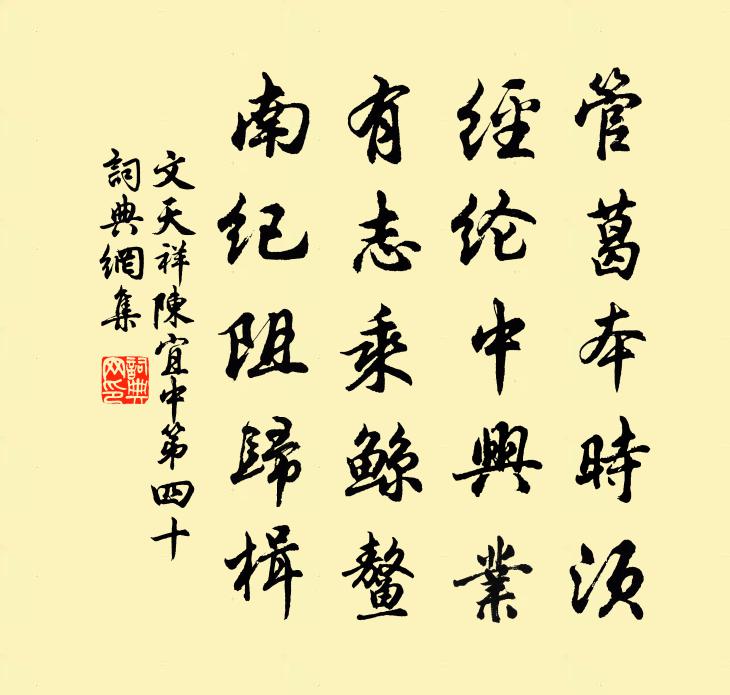 管葛本時須
經纶中興業
有志乘鲸鳌
南纪阻歸楫
文天祥陳宜中第四十
詞典網集
詞典网印